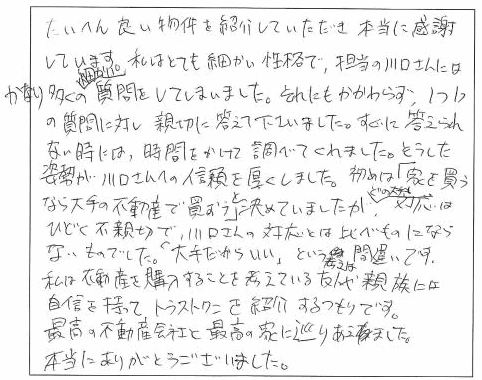 たいへん良い物件を紹介していただき本当に感謝
しています。私はとても細かい性格で、担当の川口さんには
細かい
かなり多くの質問をしてしまいました。それにもかかわらず、1つ1つ
の質問に対し親切に答えて下さいました。すぐに答えられ
ない時には、時間をかけて調べてくれました。そうした
姿勢が川口さんへの信頼を厚くしました。初めは「家を買う
なら大手の不動産で買おう」と決めていましたが、どの大手も対応は
ひどく不親切で、川口さんの対応とは比べものになら
ないものでした。「大手だからいい」という考えは間違いです。
私は不動産を購入することを考えている友人や親族には
自信を持ってトラストワンを紹介するつもりです。
最高の不動産会社と最高の家に巡りあえました。
本当にありがとうございました。